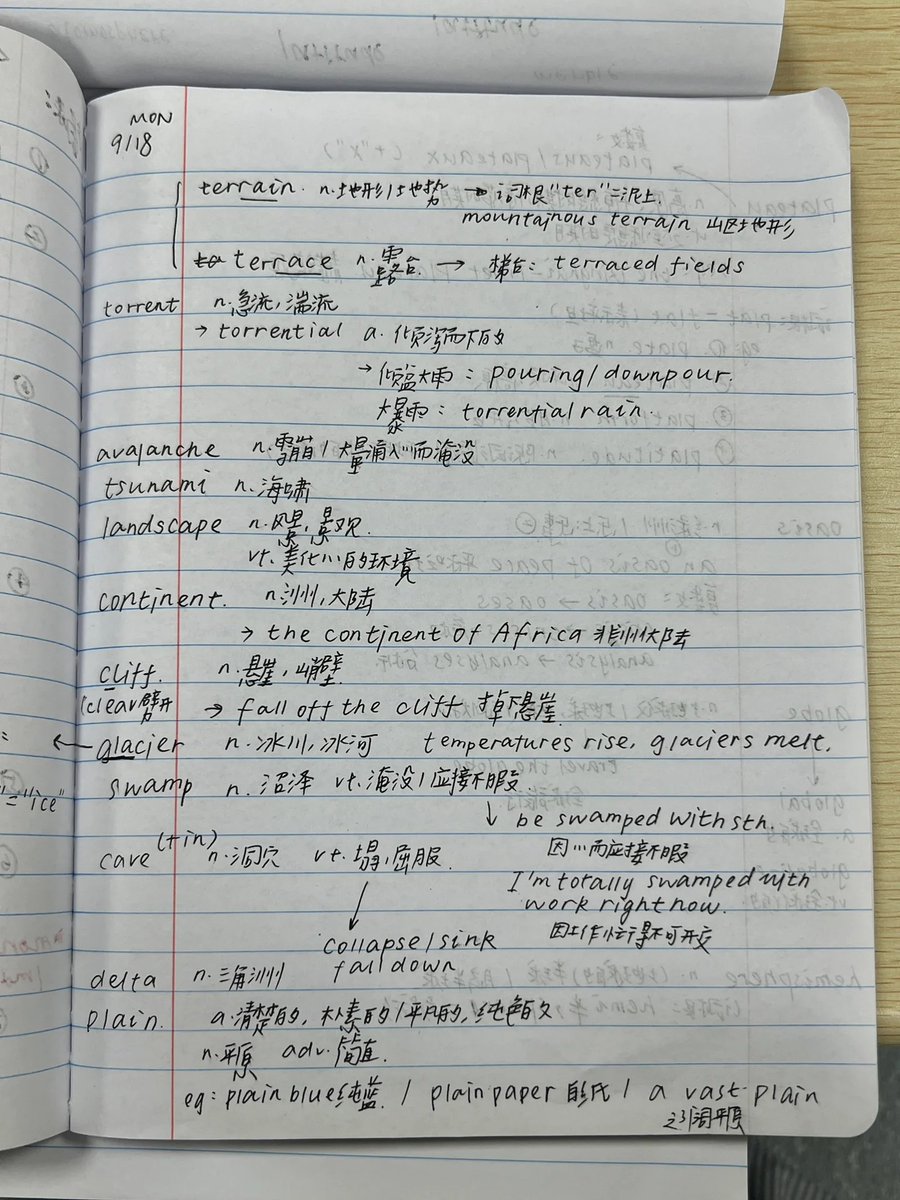 MON
9/18
terrain. n.地形/地势 → 词根"ter"=泥土
mountainous terrain 山区地形
terrace n.露台 → 梯台: terraced fields
torrent n.急流,湍流
→ torrential a.倾泻而下的
→ 倾盆大雨: pouring/downpour.
暴雨: torrential rain.
avalanche n.雪崩/大量涌入…而淹没
tsunami n.海啸
landscape n.风景,景观.
vt.美化…的环境
continent. n.洲,大陆
→ the continent of Africa 非洲大陆
cliff. n.悬崖,峭壁.
→ fall off the cliff 掉下悬崖.
(clear劈开
← glacier n.冰川,冰河 temperatures rise, glaciers melt.
="ice"
swamp n.沼泽 vt.淹没/应接不暇
↓ be swamped with sth.
因…而应接不暇
cave (+in) n.洞穴 vt.塌,屈服.
I'm totally swamped with
work right now.
因工作忙得不可开交
collapse/sink
fall down
delta n.三角洲
plain. a.清楚的,朴素的/平凡的,纯色的
n.平原 adv.简直.
eg: plain blue纯蓝. / plain paper 白纸 / a vast plain
辽阔平原